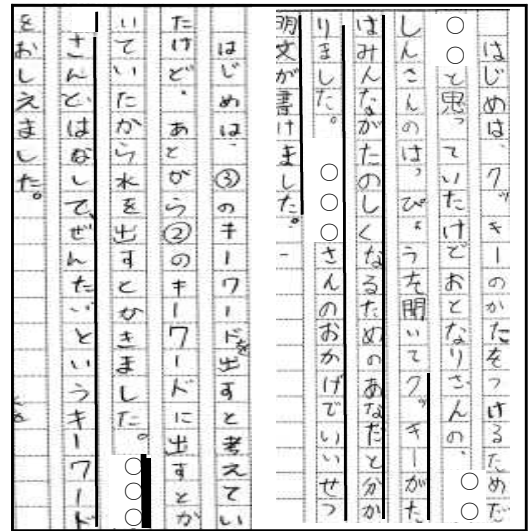 はじめは、クッキーのかたをつけるためだ
○○と思っていたけどおとなりさんの、○○
しんさんのは、びょうを開いてクッキーがた
はみんながたのしくなるためのあなだと分か
りました。○○○さんのおかげでいいせつ
明文が書けました。
はじめは、③のキーワードを出すと考えてい
たけど、あとから②のキーワードに出すとか
いていたから水を出すとかきました。○○○
さんとはなして、ぜんたいというキーワード
をおしえました。